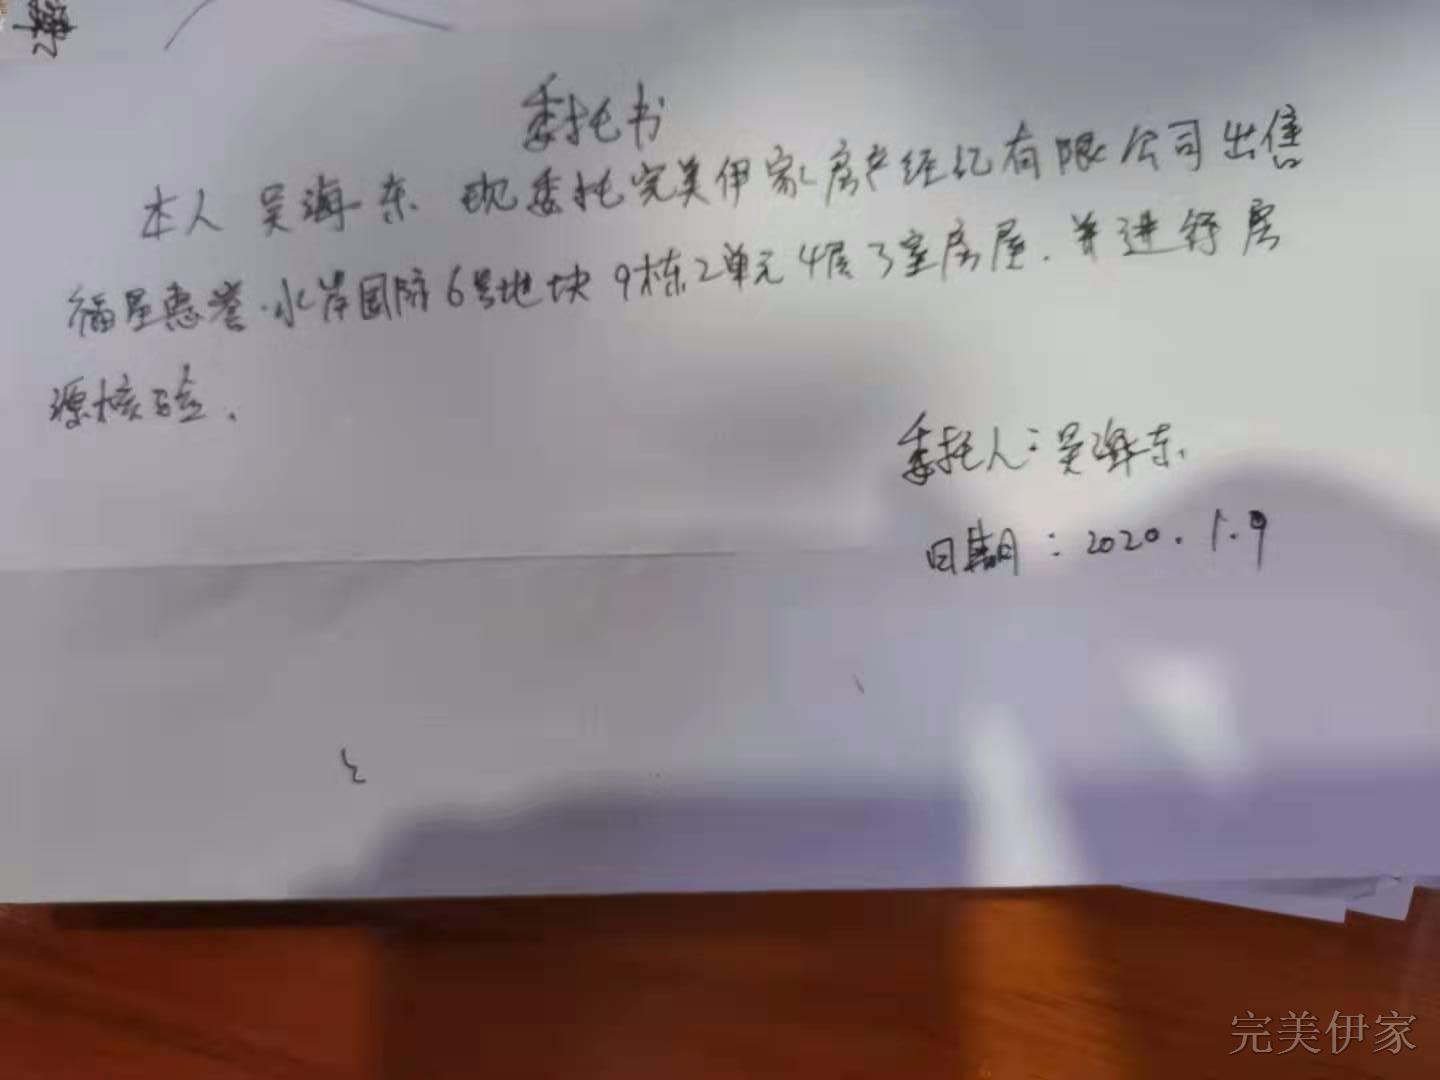 委托书
本人 吴海东 现委托完美伊家房产经纪有限公司出售
福星惠誉·水岸国际6号地块9栋2单元4层3室房屋.并进行房
源核验.
委托人:吴海东.
日期:2020.1.9
完美伊家